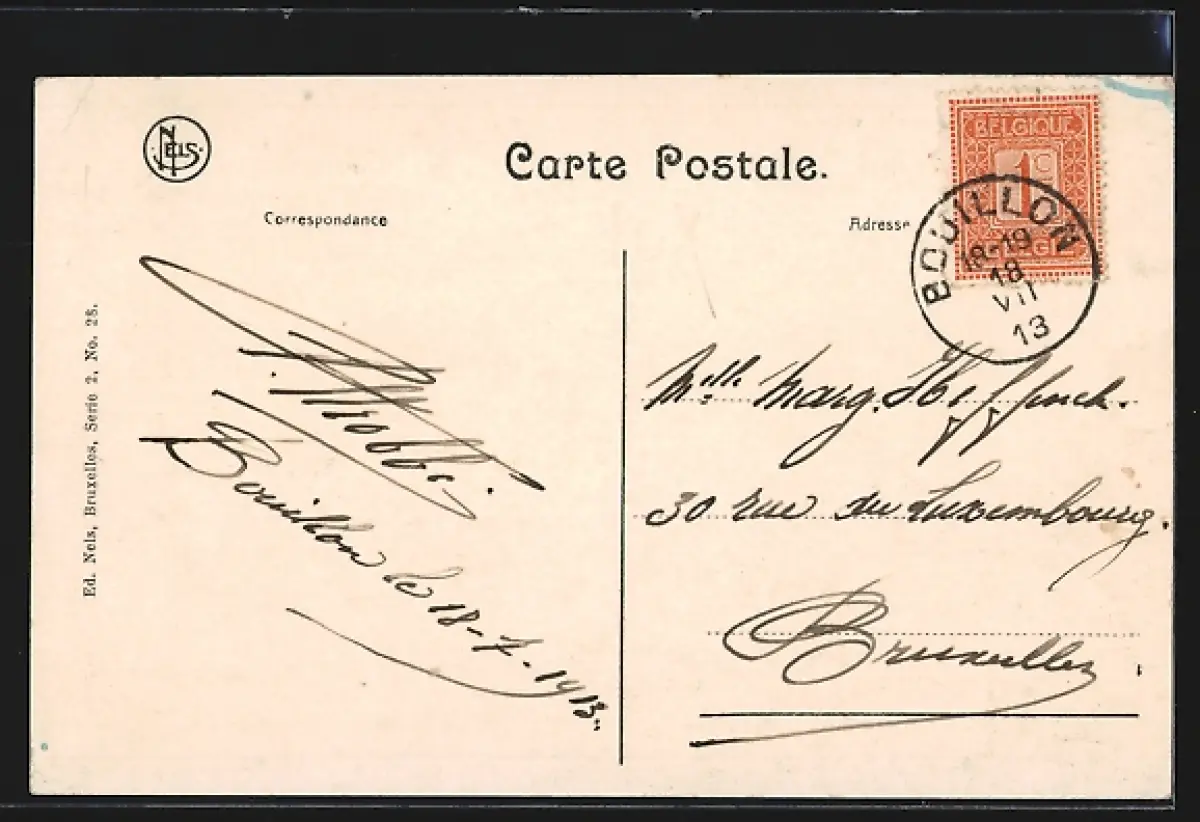 NELS
Carte Postale.
Correspondance
Adresse
BELGIQUE
1 C
BELGIË
BOUILLON
18-19
18
VII
13
Ed. Nels, Bruxelles, Serie 2, No. 28.
Bouillon le 18-7-1913.
Mlle Marg.
30 rue du Luxembourg.
Bruxelles